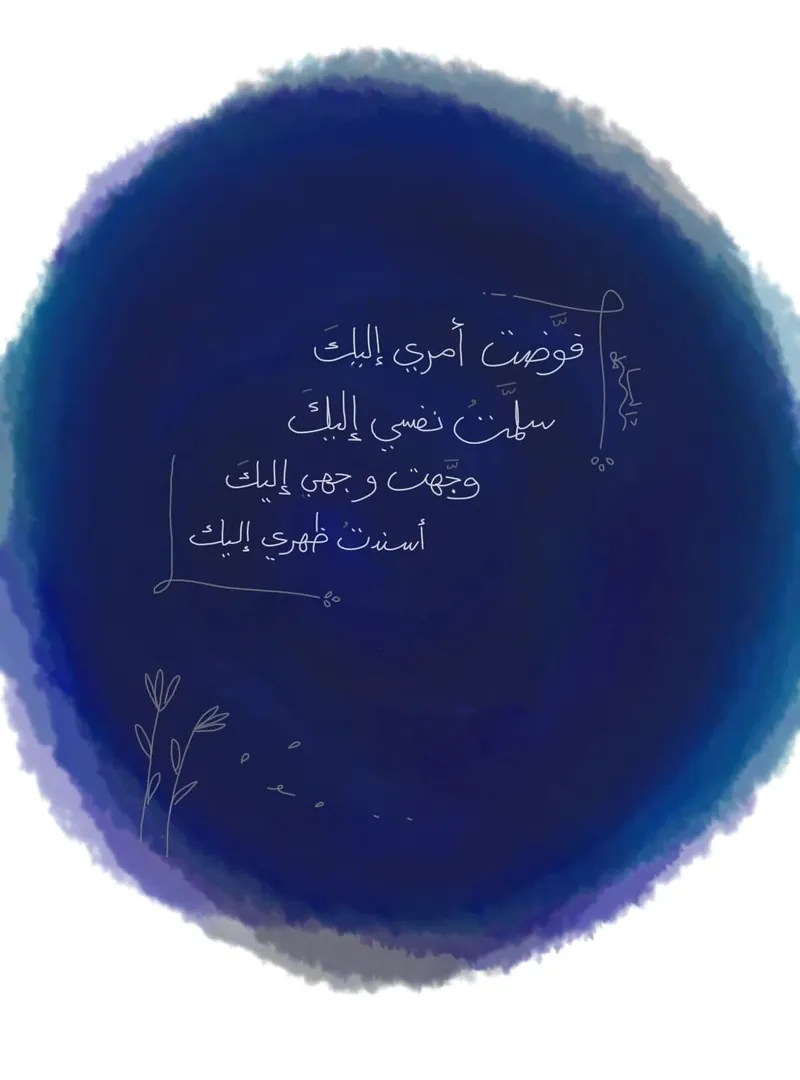 فوَّضت أمري إليكَ
سلمَّتُ نفسي إليكَ
وجَّهت وجهي إليكَ
أسندتُ ظهري إليك